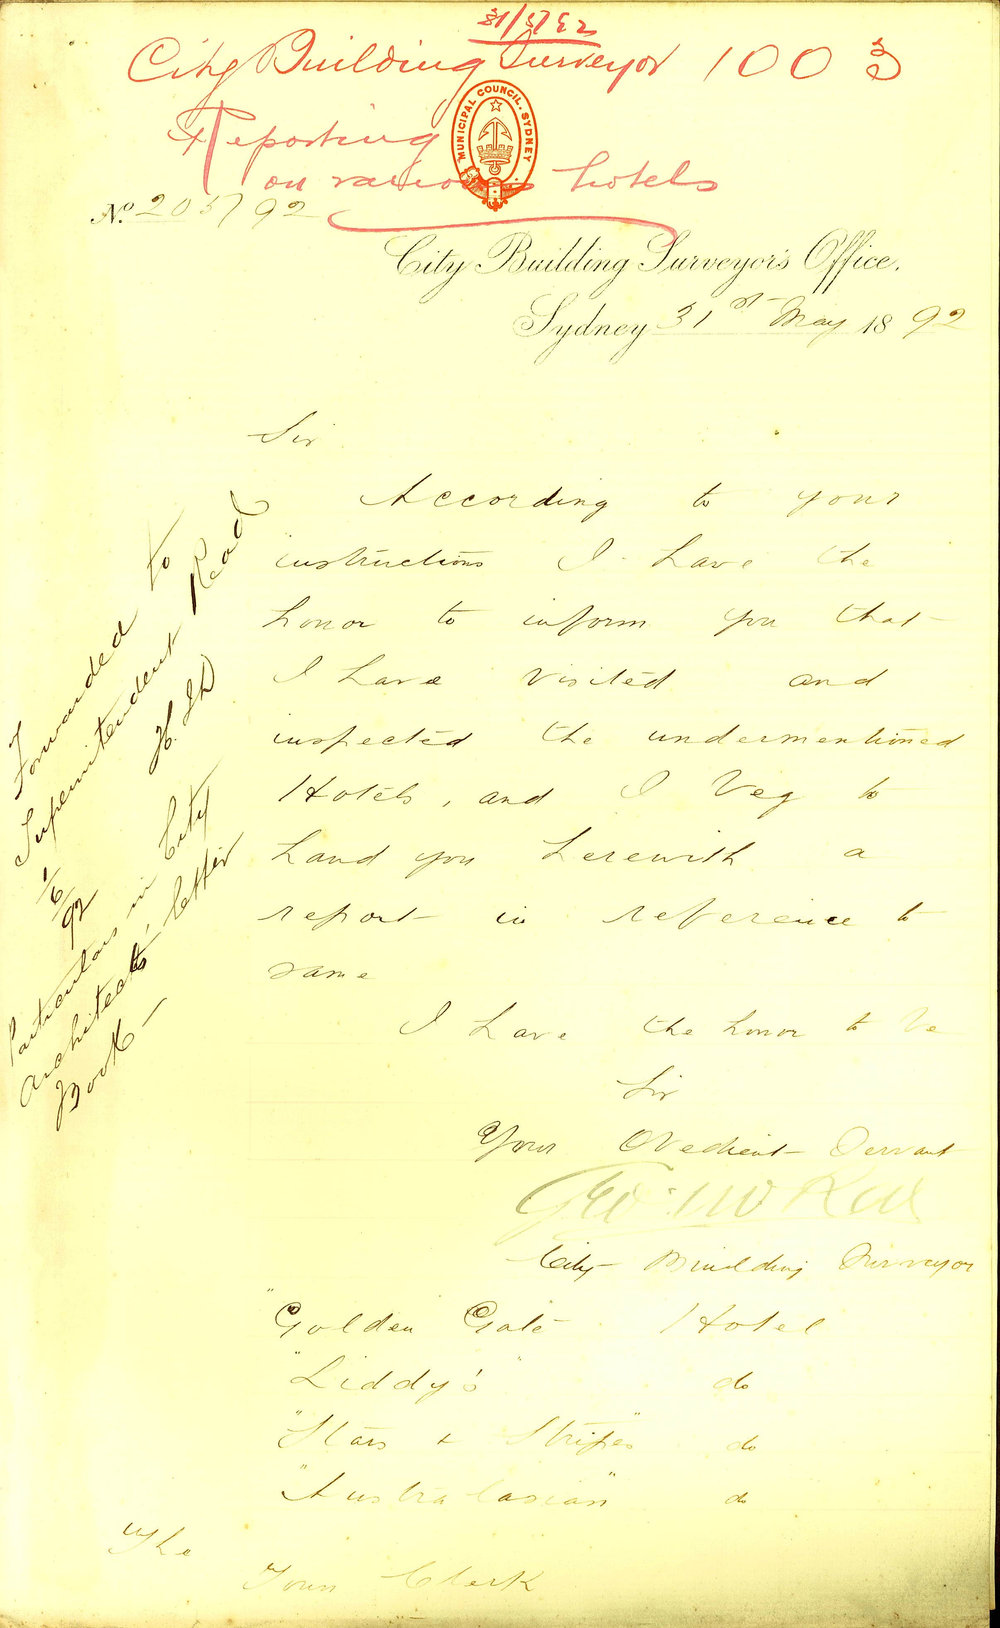 31/5/92
City Building Surveyor 1003
Reporting
on various hotels
MUNICIPAL COUNCIL. SYDNEY
No. 203/92
City Building Surveyor's Office.
Sydney 31st May 1892
Sir
According to your
instructions I have the
honor to inform you that
I have visited and
inspected the undermentioned
Hotels, and I beg to
hand you herewith a
report in reference to
same
I have the honor to be
Sir
Your Obedient Servant
City Building Surveyor
"Golden Gate Hotel
"Liddy's" do
"Stars & Stripes" do
"Australasian" do
The
Town Clerk
Forwarded to
Superintendent Read
1/6/92
Particulars in City
Architects' letter
Book —